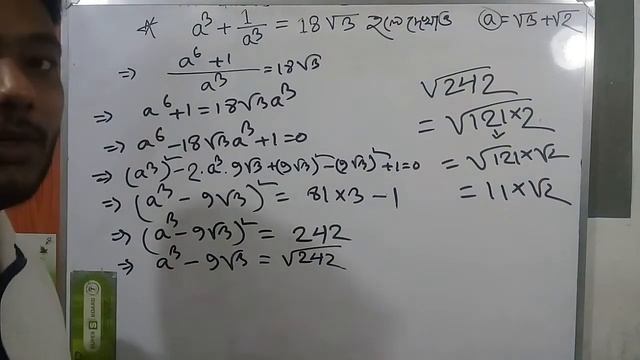 * a³ + 1/a³ = 18√3 হলে দেখাও a = √3 + √2
⇒ (a⁶ + 1)/a³ = 18√3
⇒ a⁶ + 1 = 18√3 a³
⇒ a⁶ - 18√3 a³ + 1 = 0
⇒ (a³)² - 2. a³. 9√3 + (9√3)² - (9√3)² + 1 = 0
⇒ (a³ - 9√3)² = 81 × 3 - 1
⇒ (a³ - 9√3)² = 242
⇒ a³ - 9√3 = √242
√242
= √121 × 2
= √121 × √2
= 11 × √2
SUPER
S
BOARD